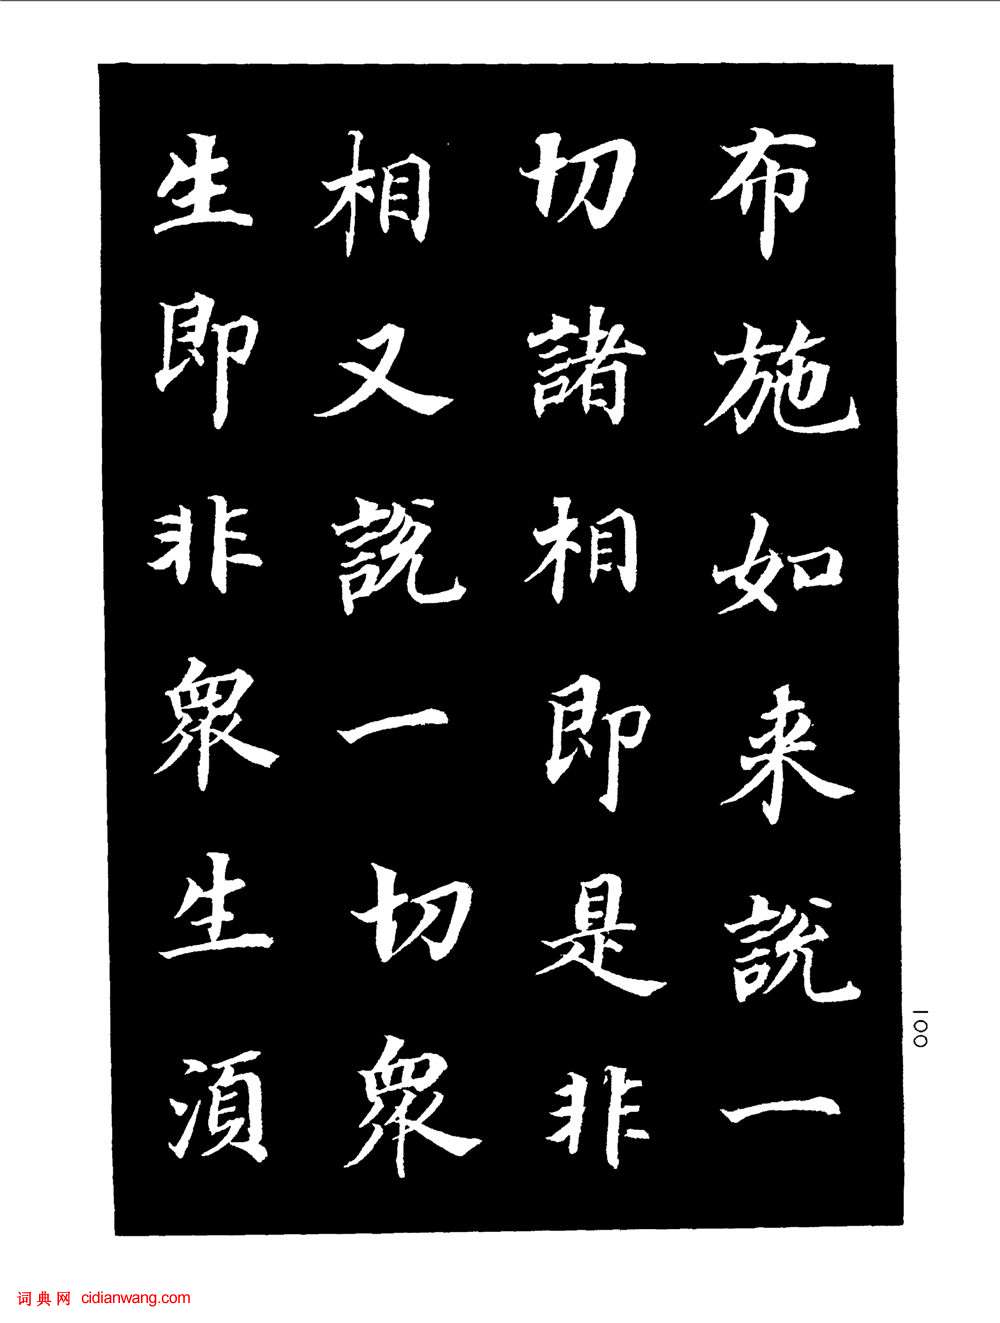 布施如来説一
切諸相即是非
相又説一切衆
生即非衆生湏
一〇〇
词典网 cidianwang.com